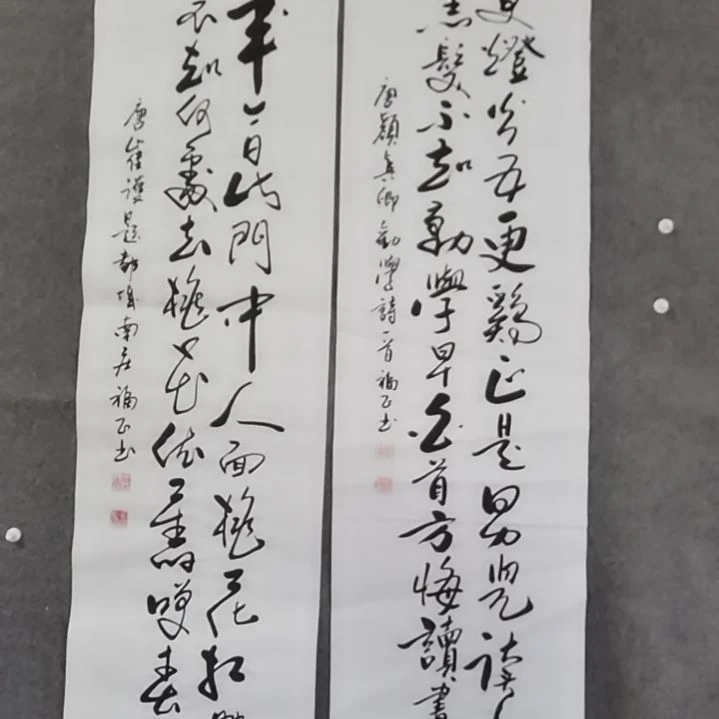 更燈火五更鷄正是男兒讀
黑髮不知勤學早白首方悔讀書
唐顔真卿勸學詩一首福正书
年今日此門中人面桃花相
不知何處去桃花依舊笑春
唐崔護題都城南庄福正书